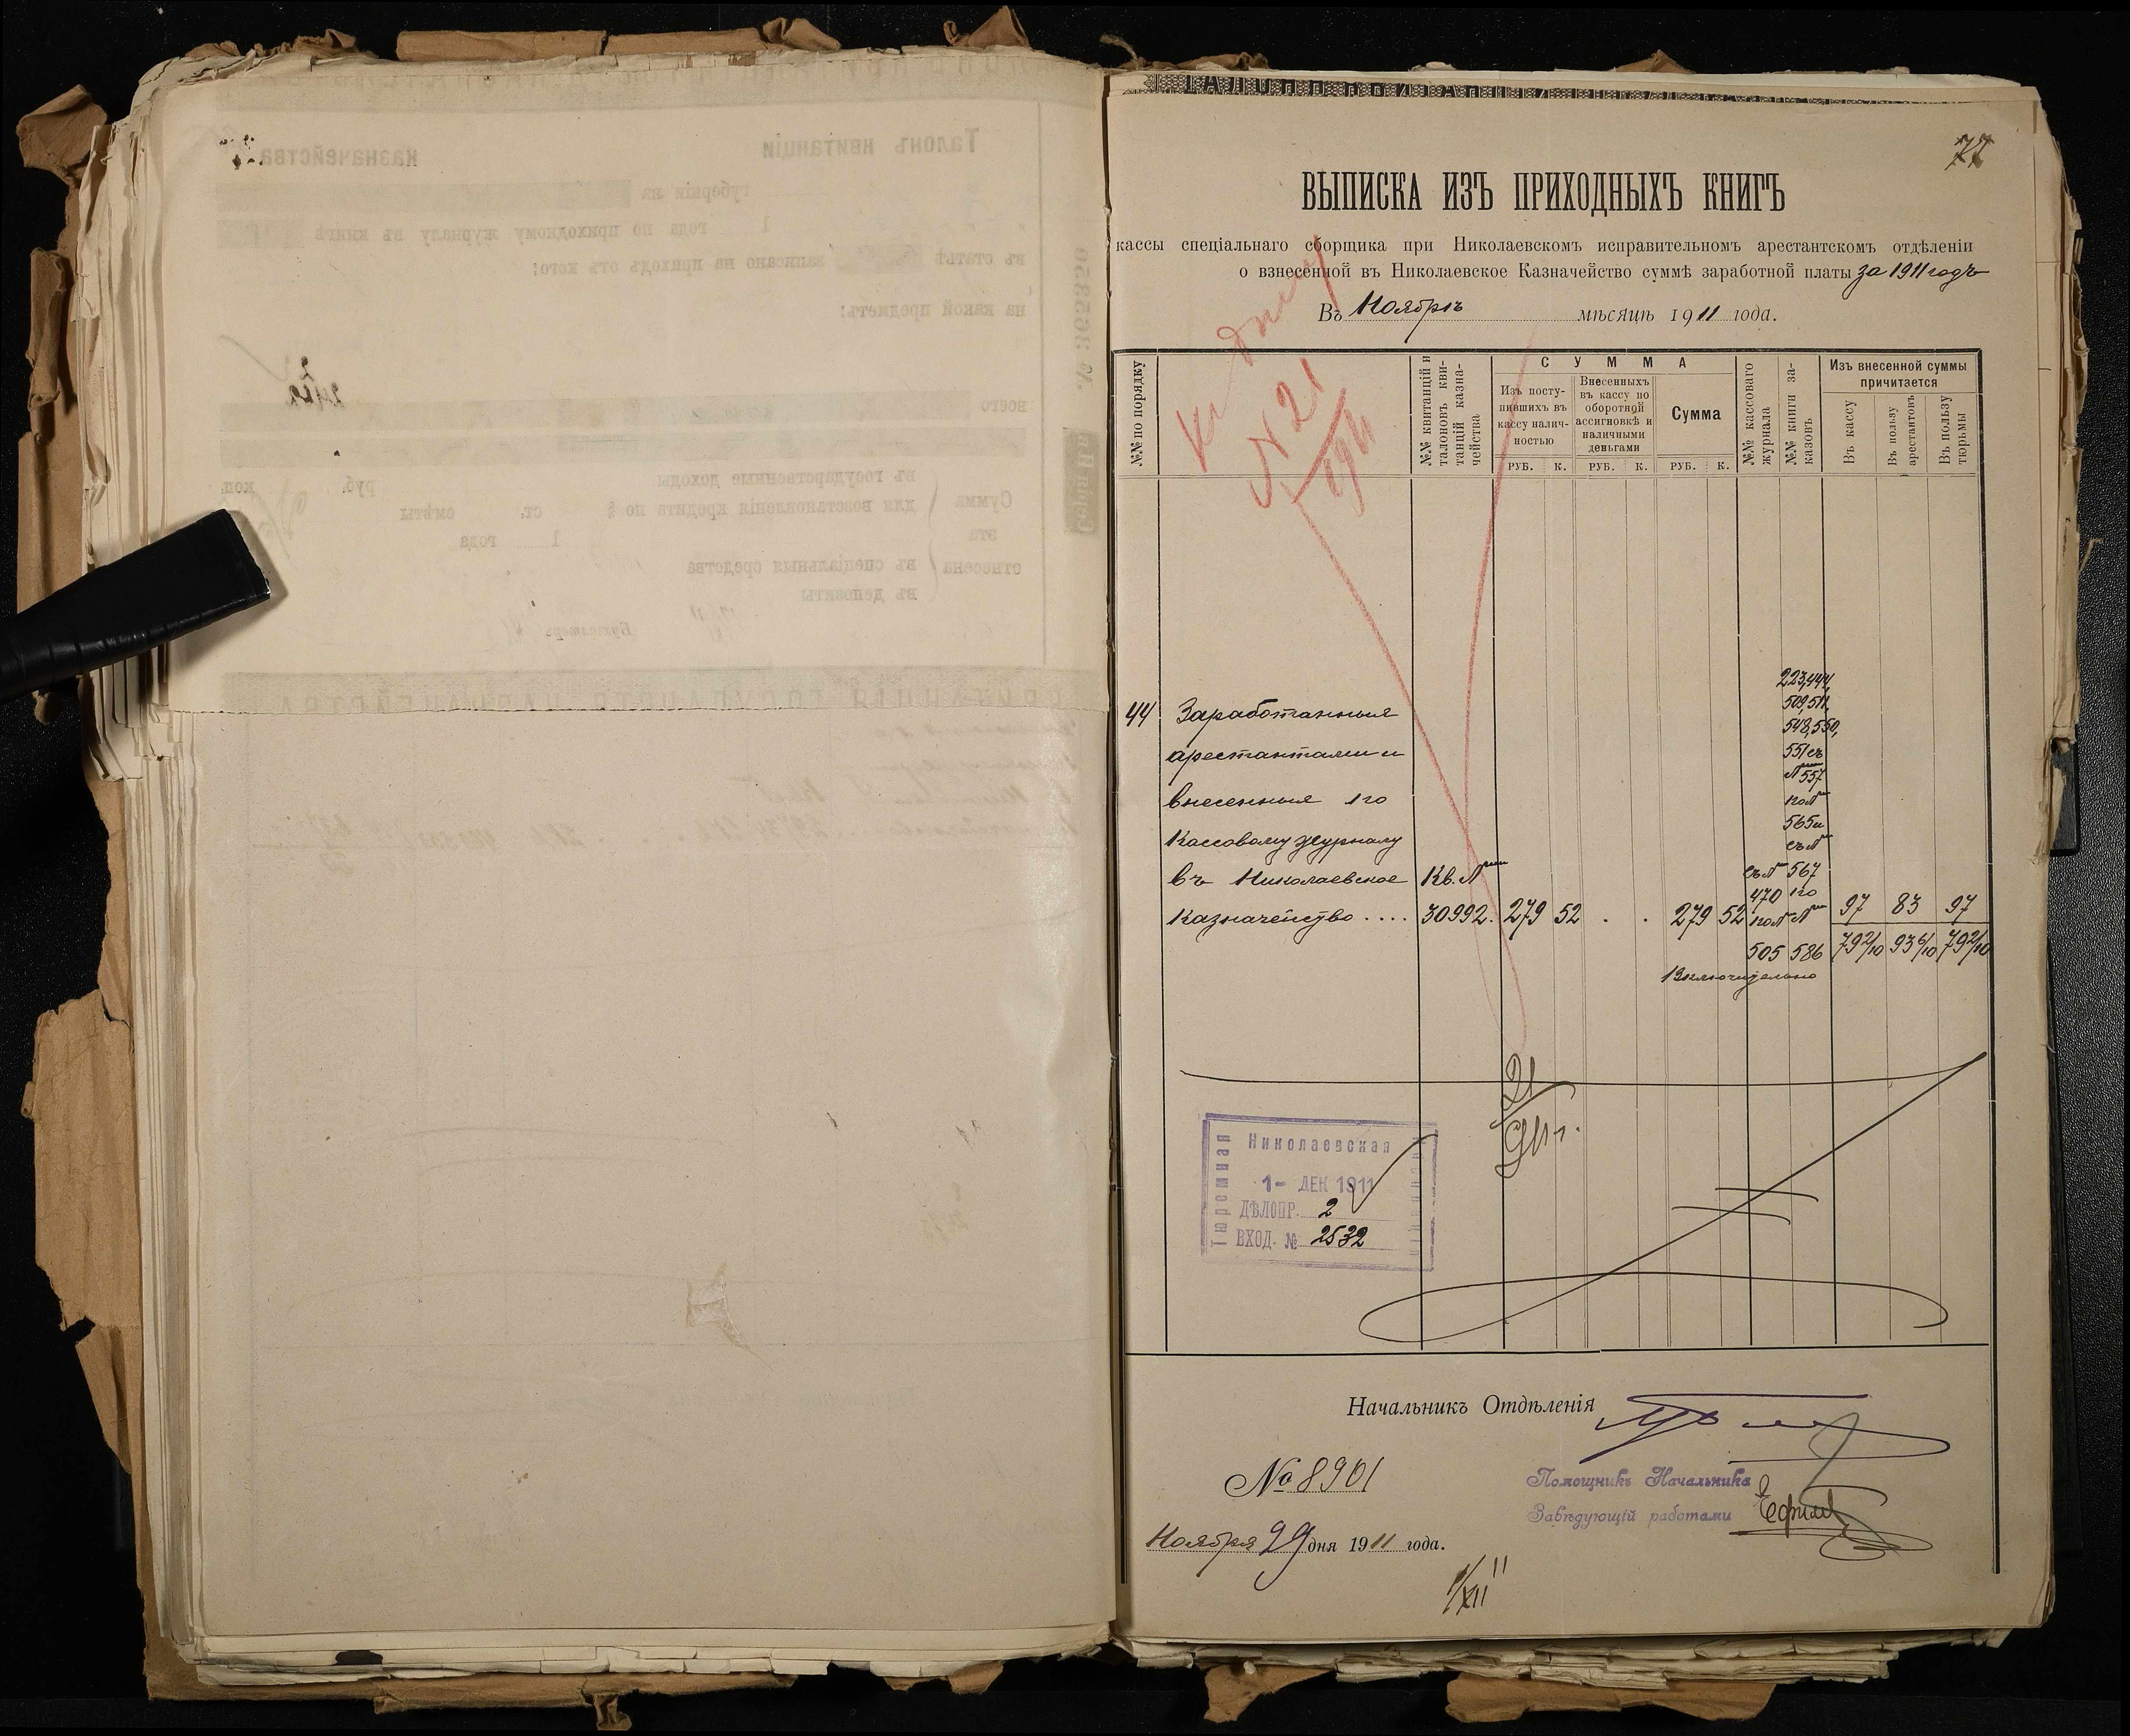 77
ВЫПИСКА ИЗЪ ПРИХОДНЫХЪ КНИГЪ
кассы спеціальнаго сборщика при Николаевскомъ исправительномъ арестантскомъ отдѣленіи
о взнесенной въ Николаевское Казначейство суммѣ заработной платы за 1911 годъ
Въ Ноябрѣ мѣсяцѣ 1911 года.
Къ дѣлу
N 21
1911
№№ по порядку
№№ квитанцій и талоновъ квитанцій казначейства
СУММА
Изъ поступившихъ въ кассу наличностью
Внесенныхъ въ кассу по оборотной ассигновкѣ и наличными деньгами
Сумма
РУБ. К. РУБ. К. РУБ. К.
№№ кассоваго журнала
№№ книги заказовъ
Изъ внесенной суммы причитается
Въ кассу
Въ пользу арестантовъ
Въ пользу тюрьмы
223,444,
509,511,
548,550,
551 съ
№ 557
по №
565 и
съ №
44 Заработанныя
арестантами и
внесенныя по
Кассовому журналу
въ Николаевское Кв. № съ № 567
470 по
Казначейство .... 30992. 279 52 . . 279 52 по № № 97 83 97
505 586 79 2/10 93 6/10 79 2/10
Включительно
21
911 г.
Николаевская
Тюремная
1- ДЕК 1911
ДѢЛОПР. 2
ВХОД. № 2532
Начальникъ Отдѣленія
№ 8901
Помощникъ Начальника
Завѣдующій работами
Ноября 29 дня 1911 года.
1/XII 11
Талонъ квитанціи казначейства
губерніи на
1 года по приходному журналу въ книгѣ
въ статьѣ записано на приходъ отъ кого:
на какой предметъ:
№ 365350
всего
руб. коп.
Сумма эта отнесена
въ государственные доходы
для возстановленія кредита по § ст. смѣты
1 года
въ спеціальныя средства
въ депозиты
Бухгалтеръ